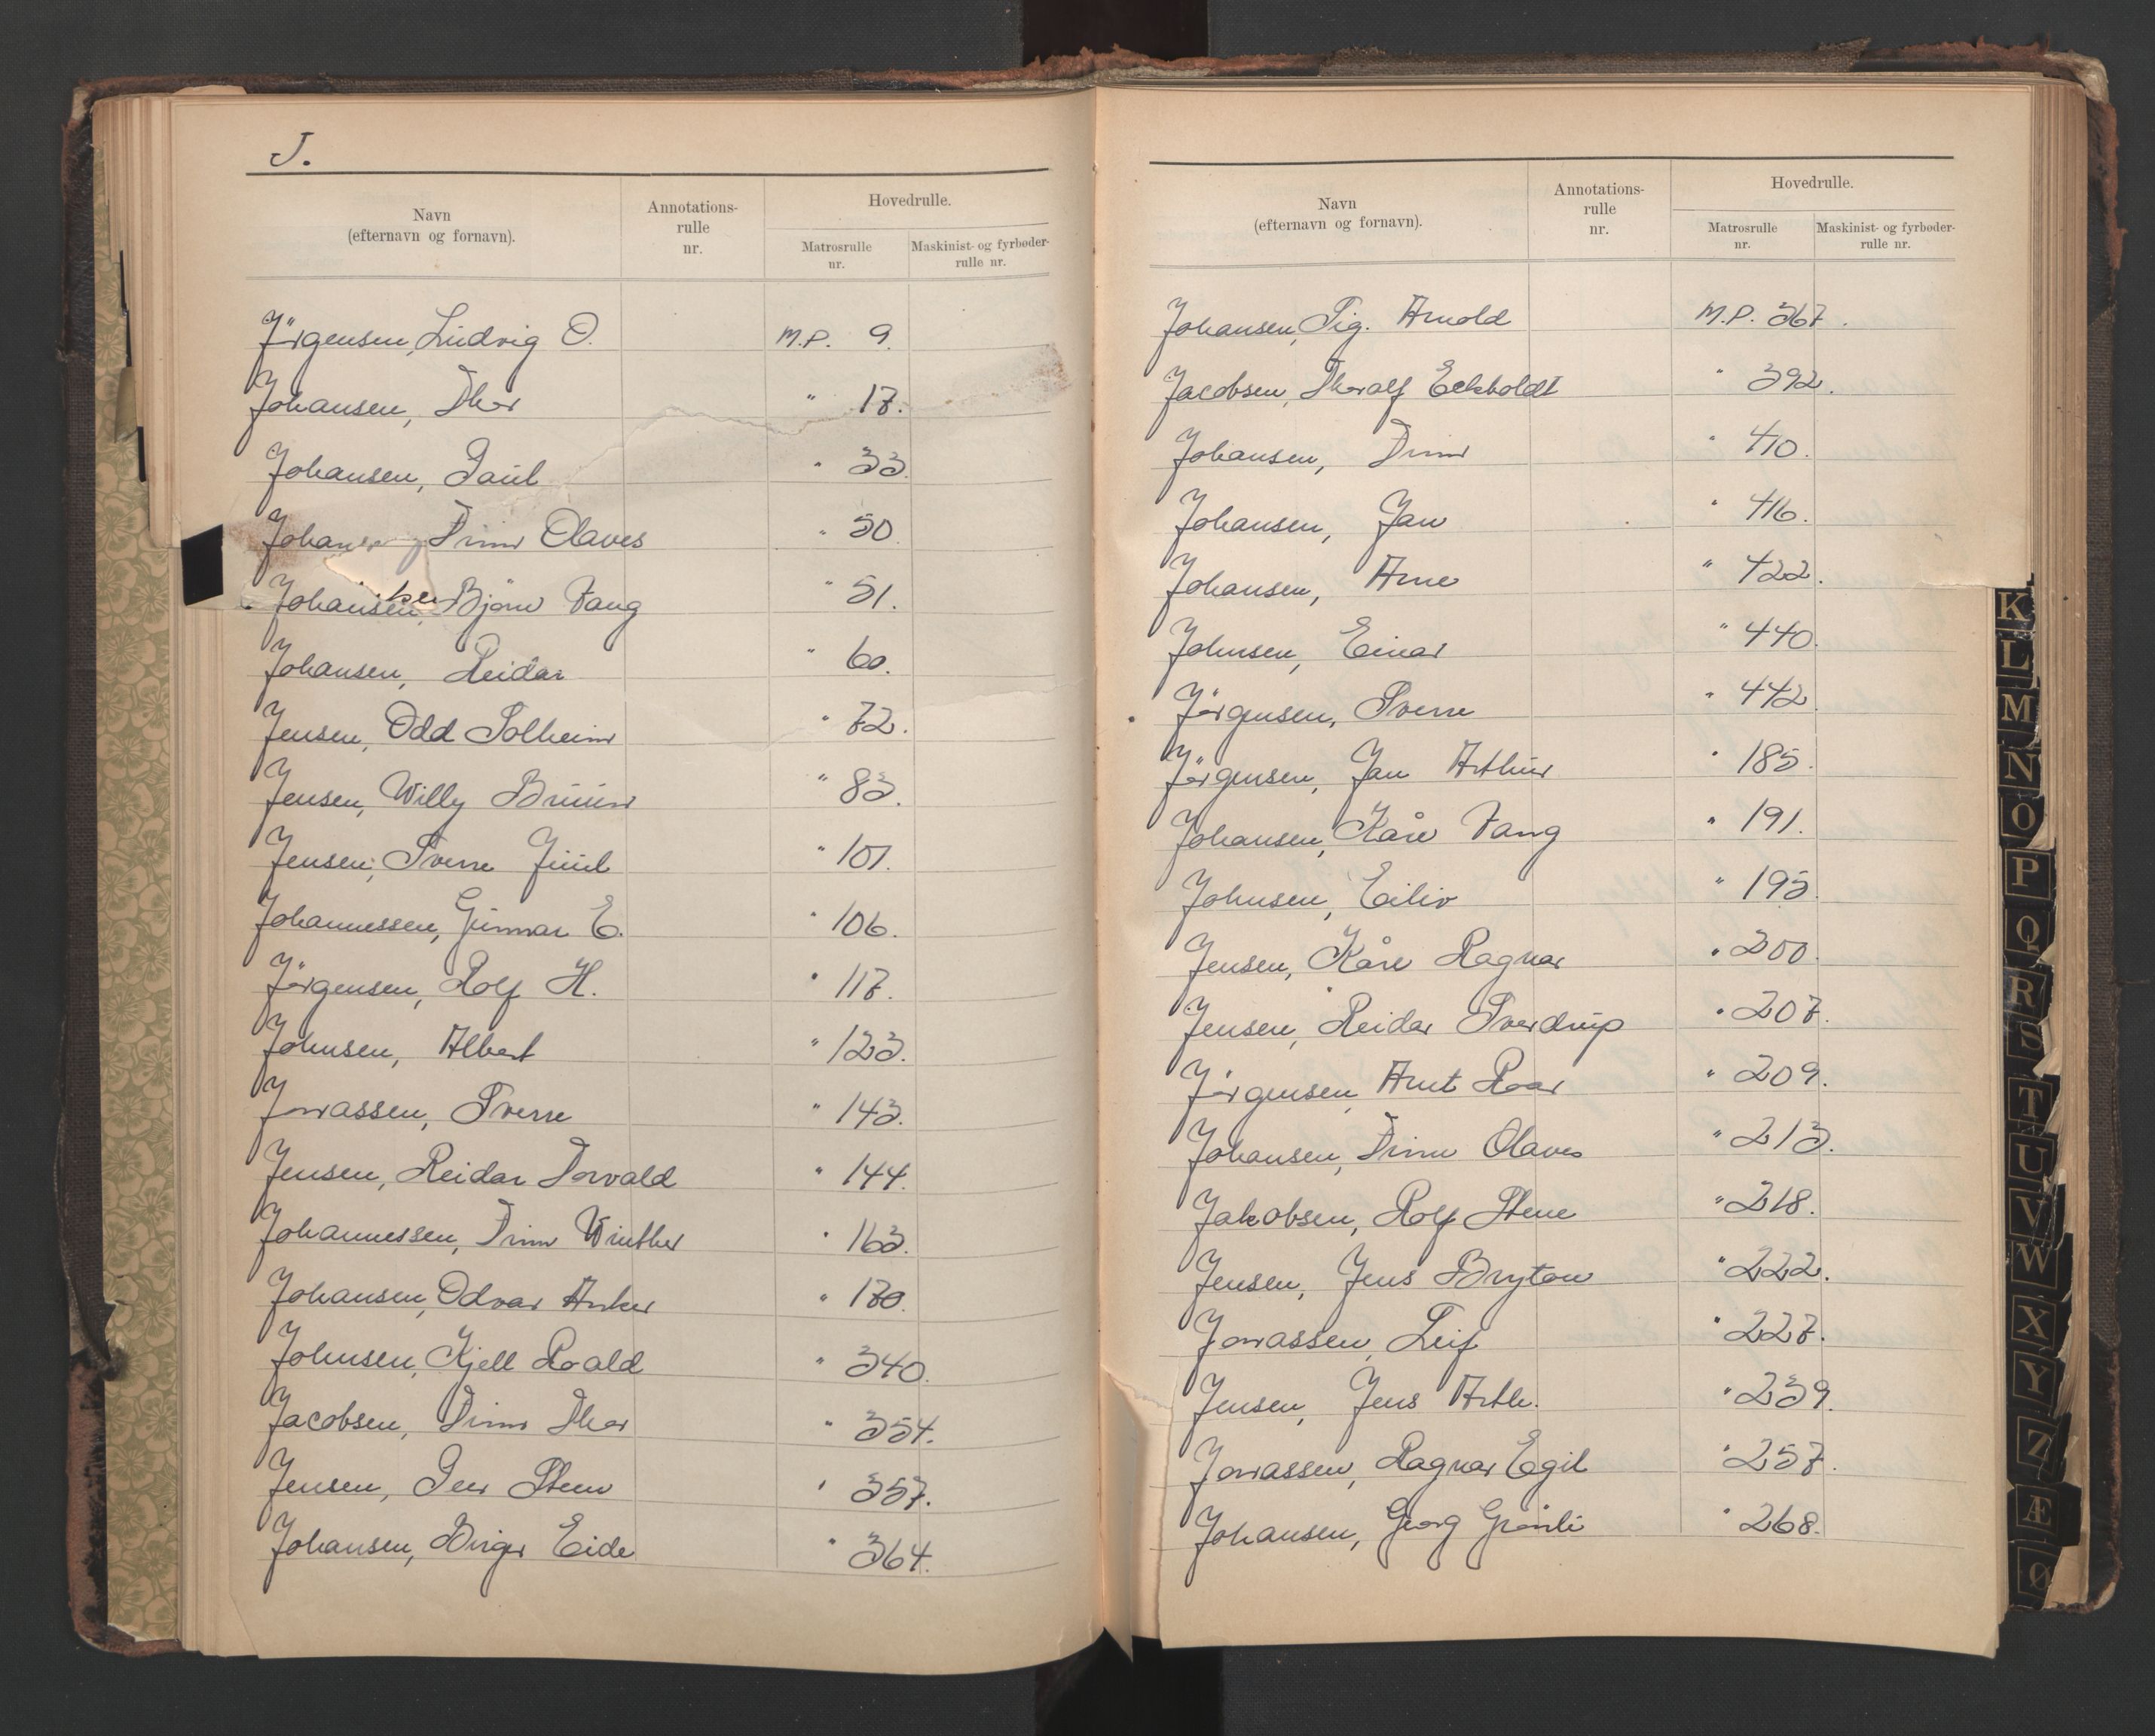 J.
Navn
(efternavn og fornavn).
Annotations-
rulle
nr.
Hovedrulle.
Matrosrulle
nr.
Maskinist- og fyrbøder-
rulle nr.
Jörgensen, Ludvig O. M.P. 9.
Johansen, Thor " 17.
Johansen, Paul " 33.
Johansen, Finn Olaves " 50.
Johansen, Bjørn Vang " 51.
Johansen, Reidar " 60.
Jensen, Odd Solheim " 72.
Jensen, Willy Bruun " 83.
Jensen, Sverre Juul " 101.
Johannessen, Gunnar E. " 106.
Jörgensen, Rolf H. " 117.
Johnsen, Albert " 123.
Jonassen, Sverre " 143.
Jensen, Reidar Torvald " 144.
Johannessen, Finn Winther " 163.
Johansen, Odvar Anker " 170.
Johnsen, Kjell Roald " 340.
Jacobsen, Finn Thor " 354.
Jensen, Per Sten " 357.
Johansen, Birger Eide " 364.
Navn
(efternavn og fornavn).
Annotations-
rulle
nr.
Hovedrulle.
Matrosrulle
nr.
Maskinist- og fyrbøder-
rulle nr.
Johansen, Sig. Arnold M.P. 367.
Jacobsen, Thoralf Eckholdt " 392.
Johansen, Finn " 410.
Johansen, Jan " 416.
Johansen, Arne " 422.
Johnsen, Einar " 440.
Jörgensen, Sverre " 442
Jörgensen, Jan Arthur " 185.
Johansen, Kåre Vang " 191.
Johnsen, Eiliv " 195.
Jensen, Kåre Ragnar " 200.
Jensen, Reidar Sverdrup " 207.
Jörgensen, Arnt Roar " 209.
Johansen, Finn Olaves " 213.
Jakobsen, Rolf Stene " 218.
Jensen, Jens Bryton " 222.
Jonassen, Leif " 227.
Jensen, Jens Arth. " 239.
Jonassen, Ragnar Egil " 257.
Johansen, Georg Grønli " 268.
K
L
M
N
O
P
Q
R
S
T
U
V
W
X
Y
Z
Æ
Ø